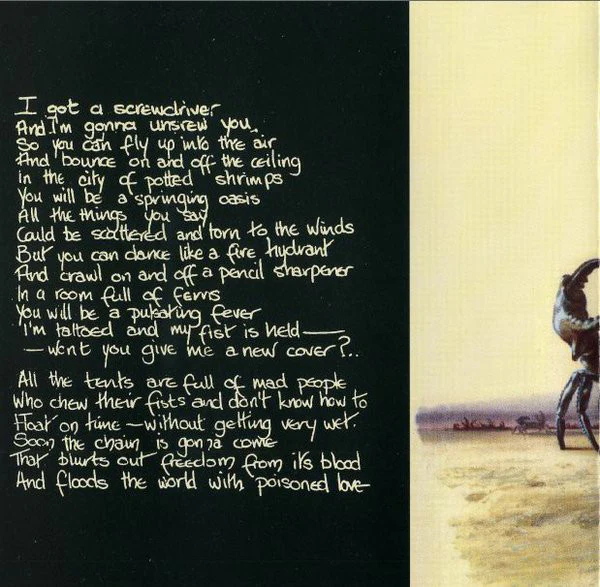 I got a screwdriver
And I'm gonna unsrew you.
So you can fly up into the air
And bounce on and off the ceiling
In the city of potted shrimps
You will be a springing oasis
All the things you say
Could be scattered and torn to the winds
But you can dance like a fire hydrant
And crawl on and off a pencil sharpener
In a room full of ferns
You will be a pulsating fever
I'm tattoed and my fist is held —
— wont you give me a new cover?..
All the tents are full of mad people
Who chew their fists and don't know how to
Float on time — without getting very wet.
Soon the chain is gonna come
That blurts out freedom from its blood
And floods the world with poisoned love